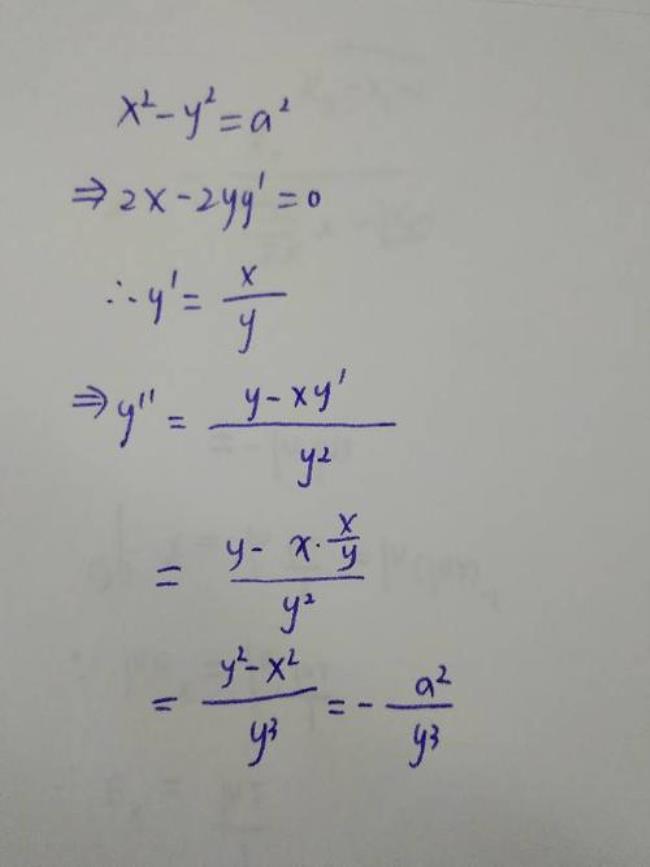 x²-y²=a²
⇒2x-2yy'=0
∴y'=x/y
⇒y''=(y-xy')/y²
=(y-x·x/y)/y²
=(y²-x²)/y³=-a²/y³